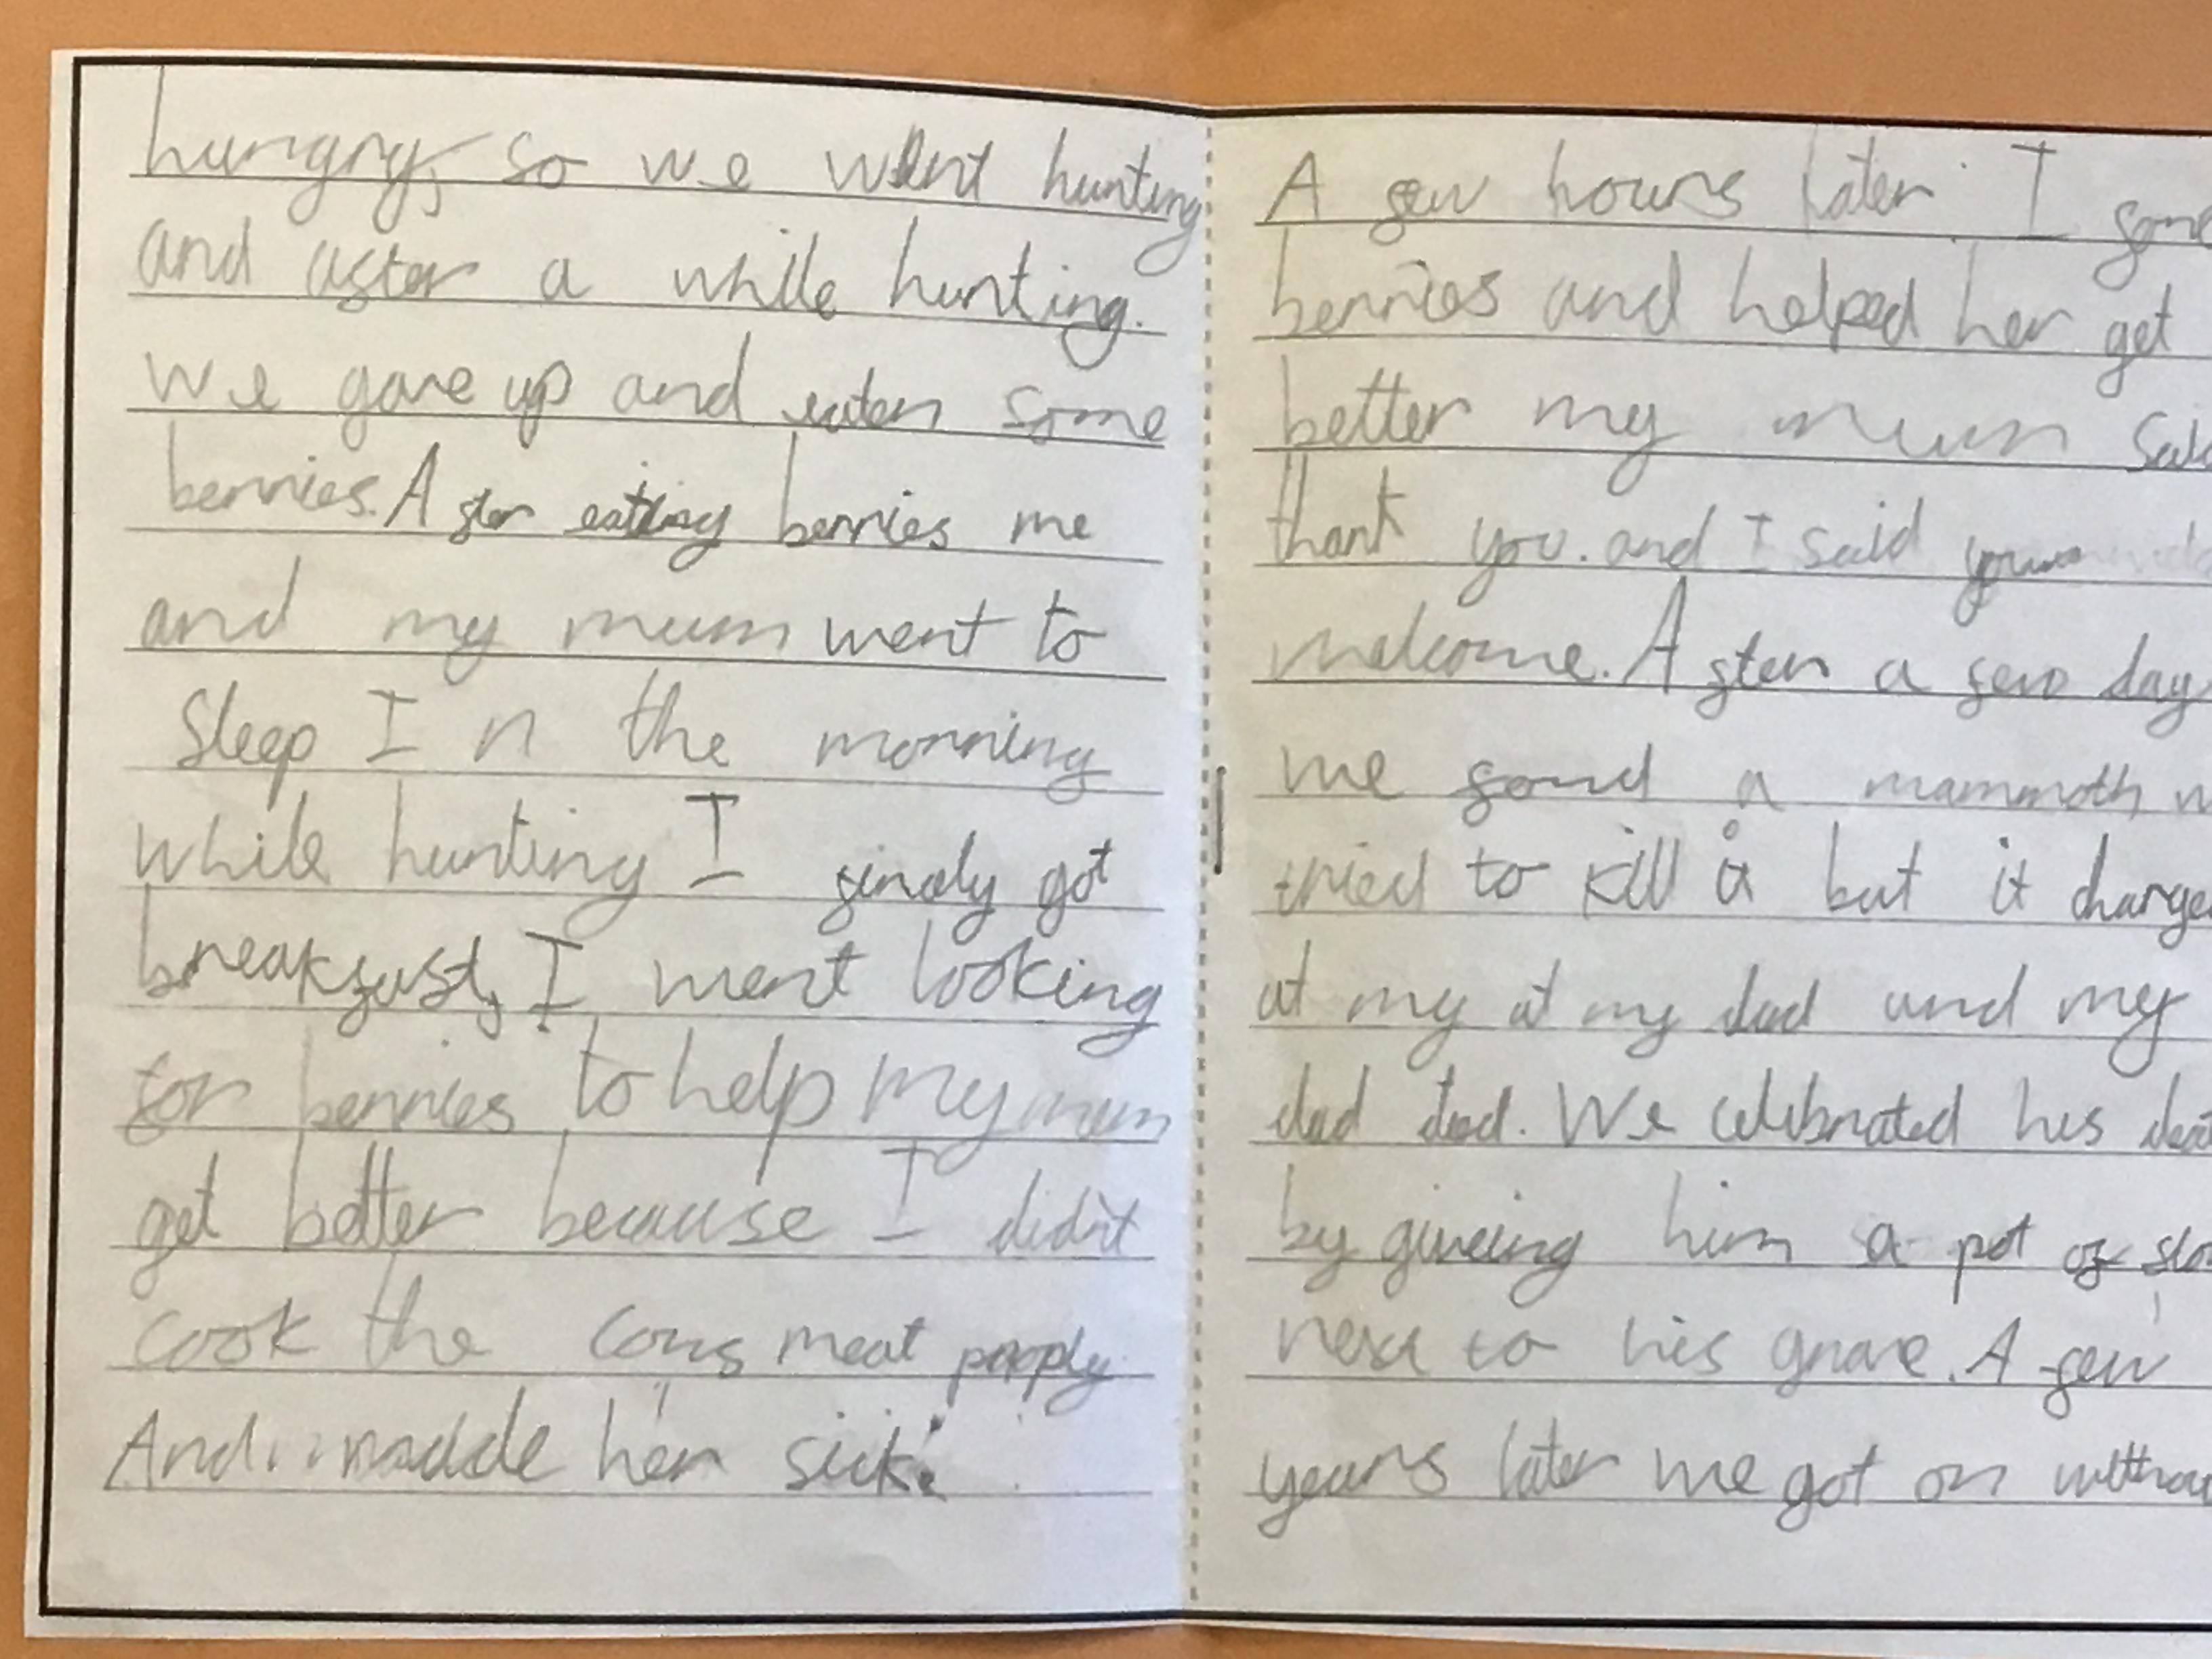 hungry, so we went hunting
and after a while hunting.
We gave up and eaten some
berries. After eating berries me
and my mum went to
sleep In the morning
while hunting I finaly got
breakfast, I went looking
for berries to help my mum
get better because I didn't
cook the cows meat proply
And madde her sick.
A few hours later I
berries and helped her get
better my mum
thank you. and I said
welcome. After a few
we found a mammoth
tried to kill it but it
at my at my dad and my
dad died. We celibrated his
by giveing him a pot of
next to his grave. A few
years later we got on